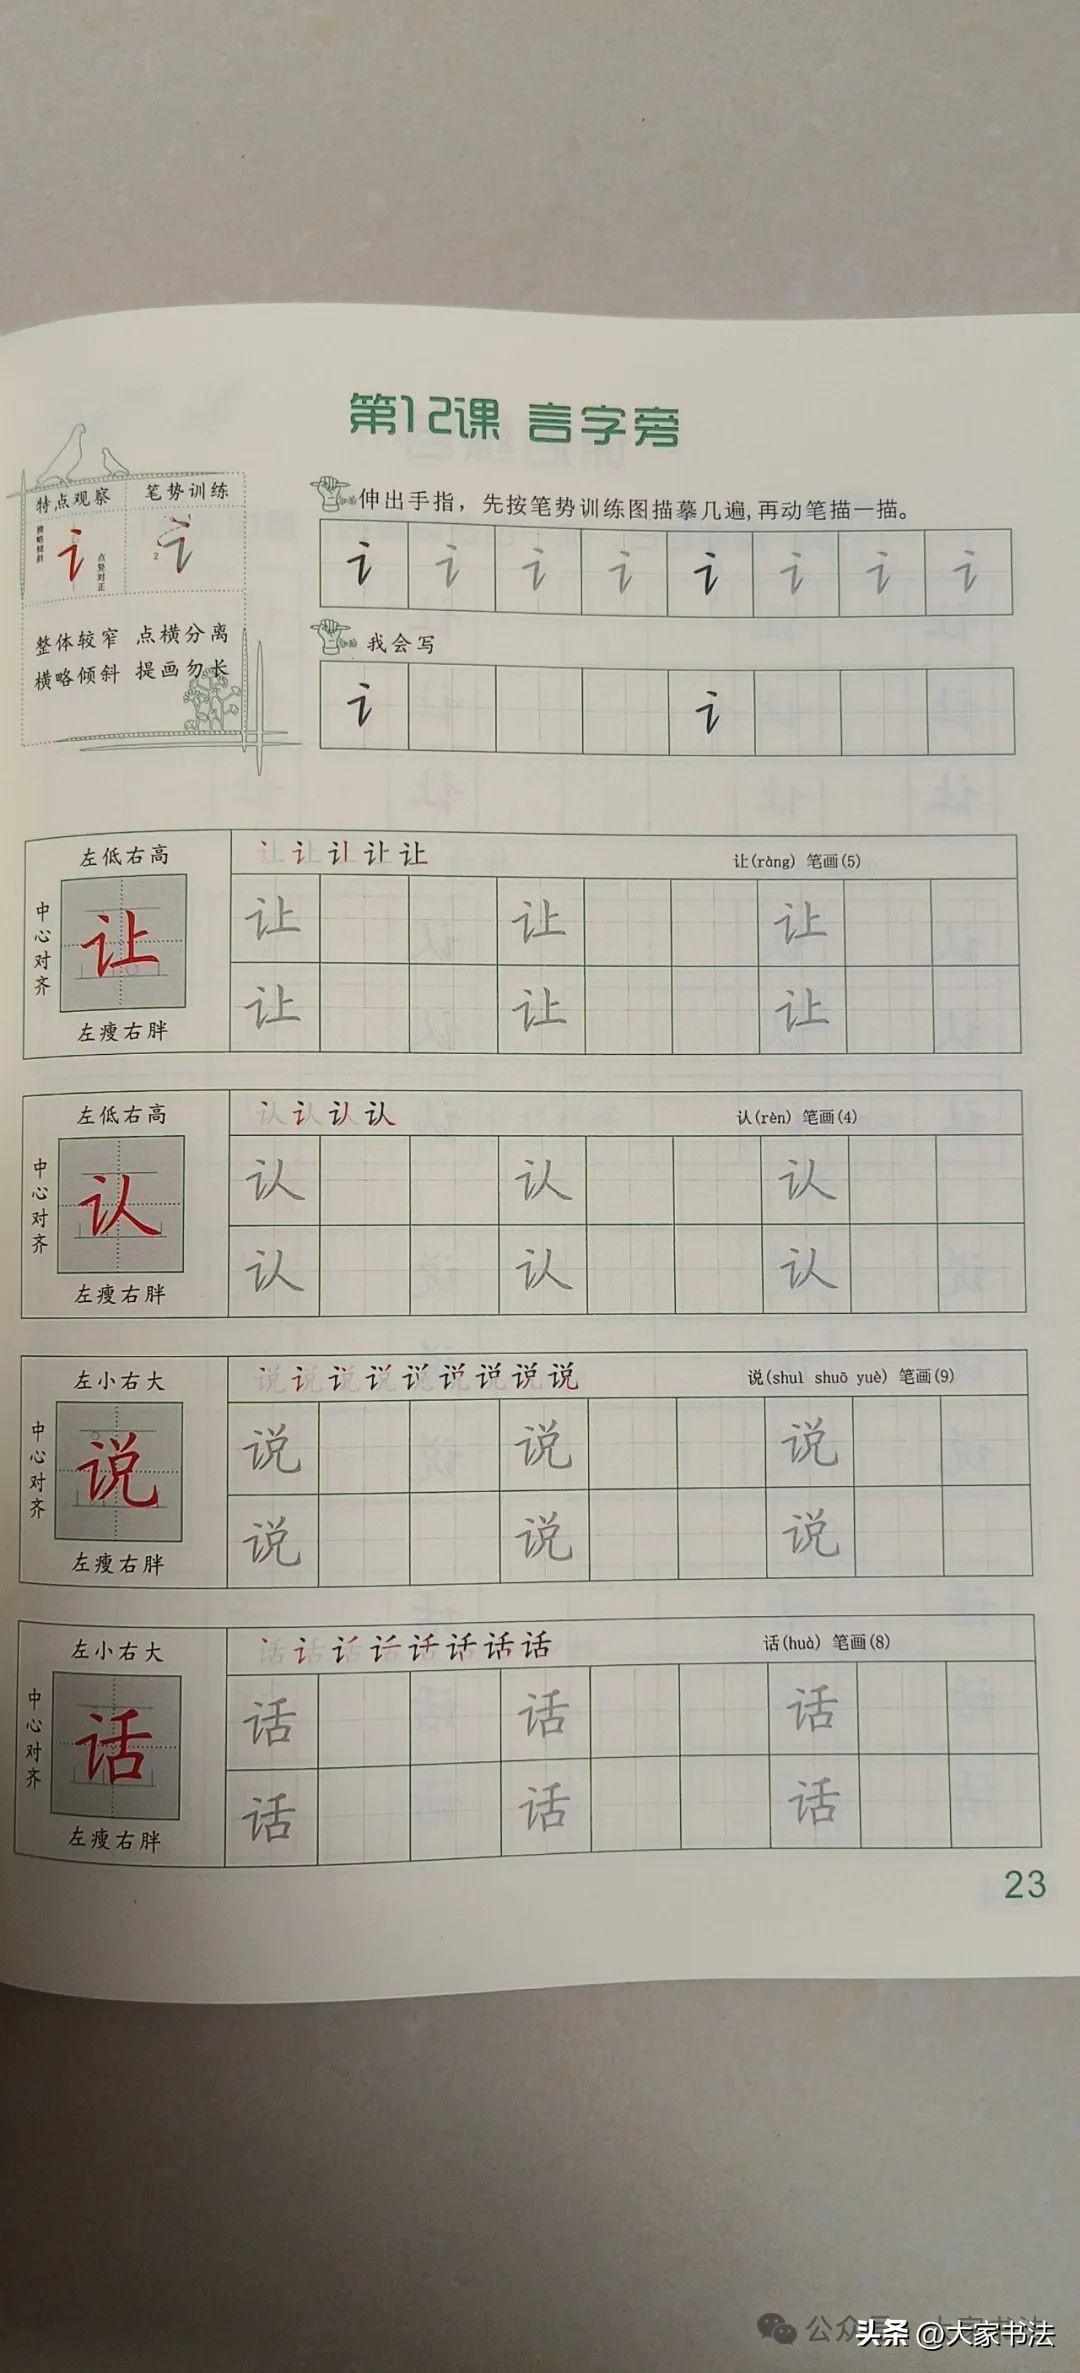 第12课 言字旁
特点观察 笔势训练
横略倾斜
讠
点竖对正
2
讠
整体较窄 点横分离
横略倾斜 提画勿长
伸出手指，先按笔势训练图描摹几遍,再动笔描一描。
讠 讠 讠 讠 讠 讠 讠 讠
我会写
讠 讠
左低右高
中心对齐
让
左瘦右胖
让 让 让 让 让
让(ràng) 笔画(5)
让 让 让
让 让 让
左低右高
中心对齐
认
左瘦右胖
认 认 认 认
认(rèn) 笔画(4)
认 认 认
认 认 认
左小右大
中心对齐
说
左瘦右胖
说 说 说 说 说 说 说 说 说
说(shuì shuō yuè) 笔画(9)
说 说 说
说 说 说
左小右大
中心对齐
话
左瘦右胖
话 话 话 话 话 话 话 话
话(huà) 笔画(8)
话 话 话
话 话 话
23
公众号 大家书法
头条 @大家书法